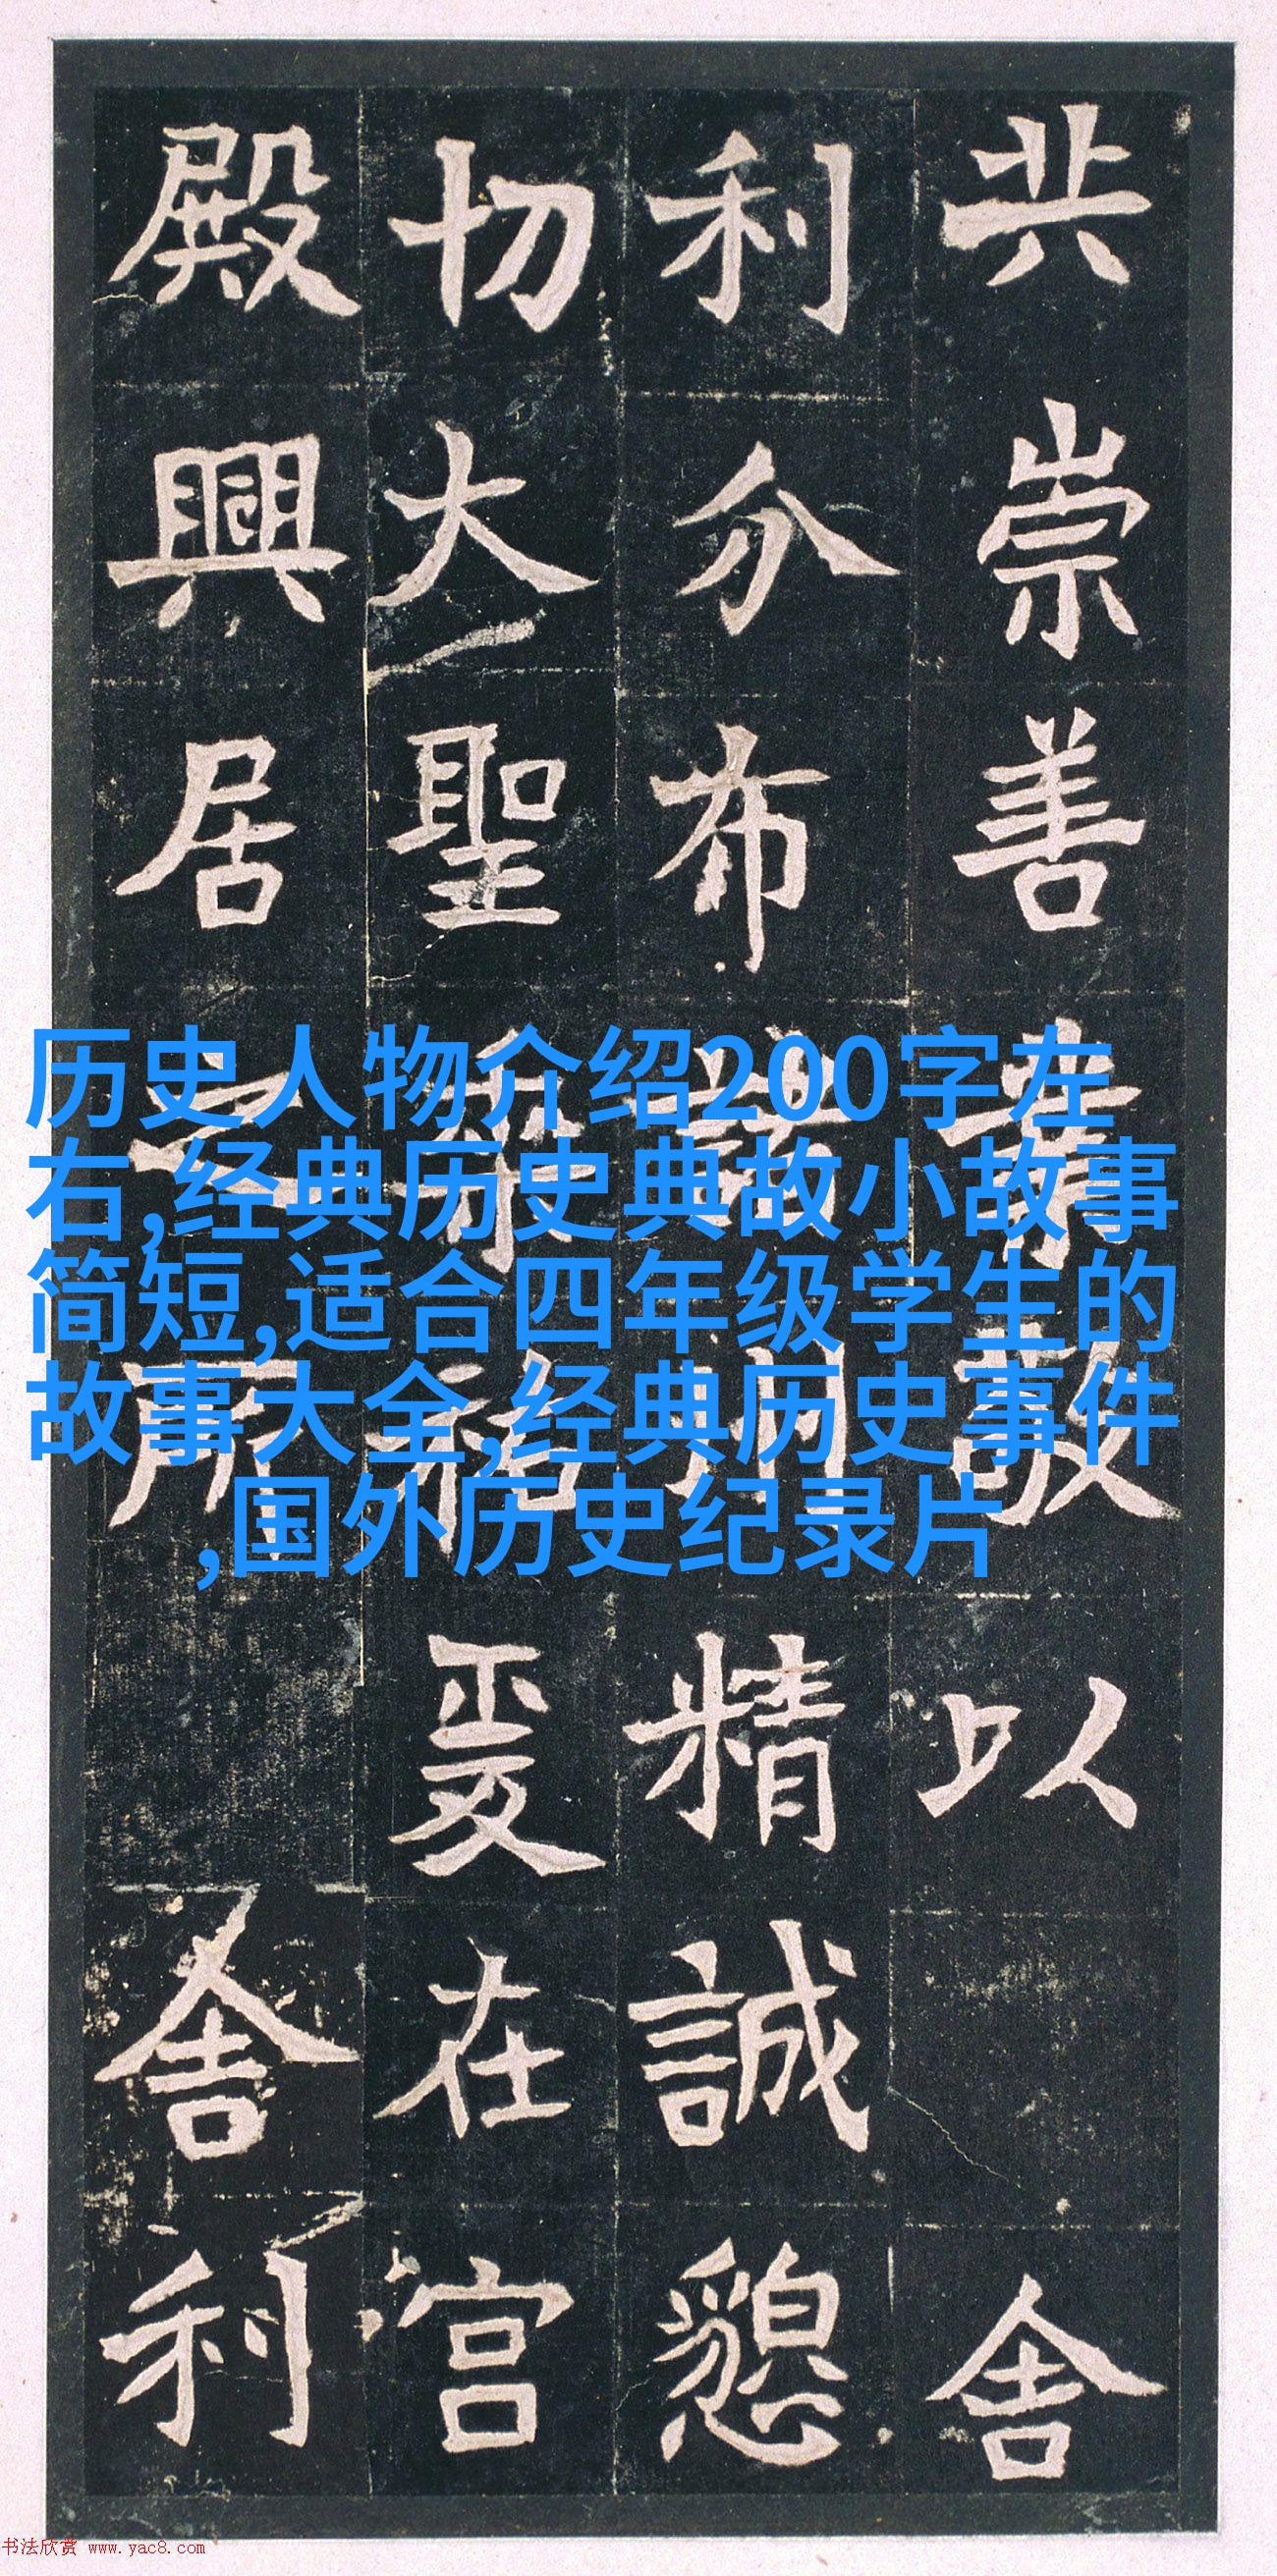 共崇善業敬以舍
利分布諸州精誠懇
切大聖祐爰在宮
殿興居之所舍利
历史人物介绍200字左
右,经典历史典故小故事
简短,适合四年级学生的
故事大全,经典历史事件
,国外历史纪录片
书法欣赏 www.yac8.com